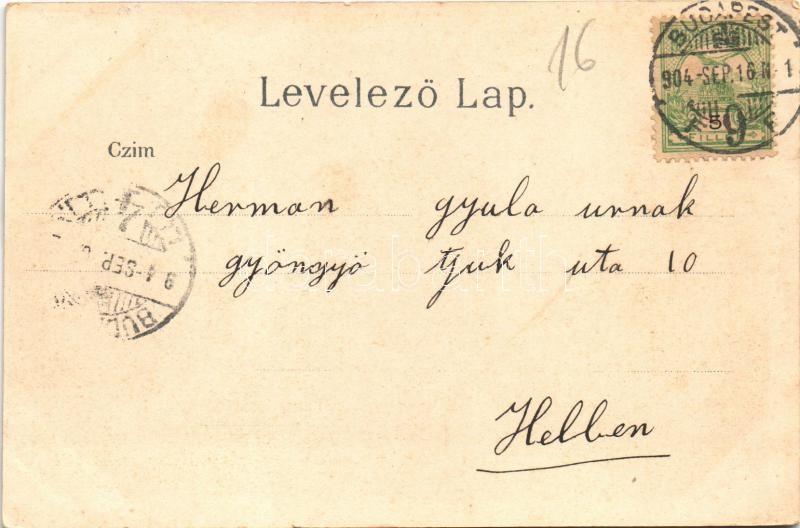 16
BUDAPEST
904-SEP.16
5
FILLÉR
9
Levelezö Lap.
Czim
Herman gyula urnak
gyöngyö tjuk uta 10
9 4-SEP.
BUD
Helben